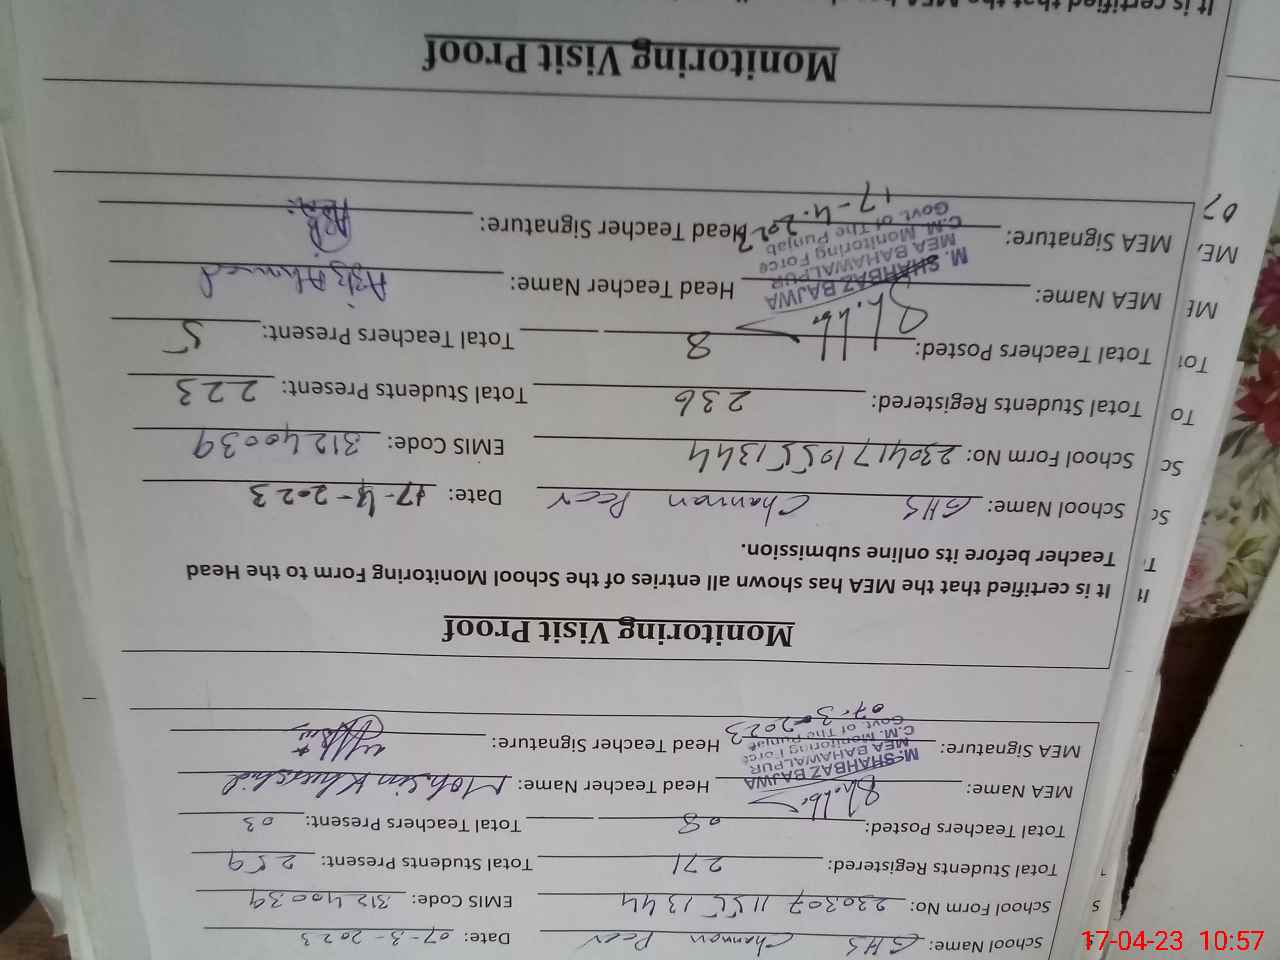 School Name: GHS Channan Peer Date: 07-3-2023
School Form No: 230307 1155 1344 EMIS Code: 31240039
Total Students Registered: 271 Total Students Present: 259
Total Teachers Posted: 08 Total Teachers Present: 03
MEA Name: Head Teacher Name: Mohsin Khurshid
M.SHAHBAZ BAJWA
MEA BAHAWALPUR
C.M. Monitoring Force
Govt. of The Punjab
MEA Signature: 07-3-2023 Head Teacher Signature:
Monitoring Visit Proof
It is certified that the MEA has shown all entries of the School Monitoring Form to the Head
Teacher before its online submission.
School Name: GHS Channan Peer Date: 17-4-2023
School Form No: 230417 1055 1344 EMIS Code: 31240039
Total Students Registered: 236 Total Students Present: 223
Total Teachers Posted: 8 Total Teachers Present: 5
MEA Name: Head Teacher Name: Aziz Ahmed
M. SHAHBAZ BAJWA
MEA BAHAWALPUR
C.M. Monitoring Force
Govt. of The Punjab
MEA Signature: 17-4-2023 Head Teacher Signature:
Monitoring Visit Proof
It is certified that the MEA
17-04-23 10:57